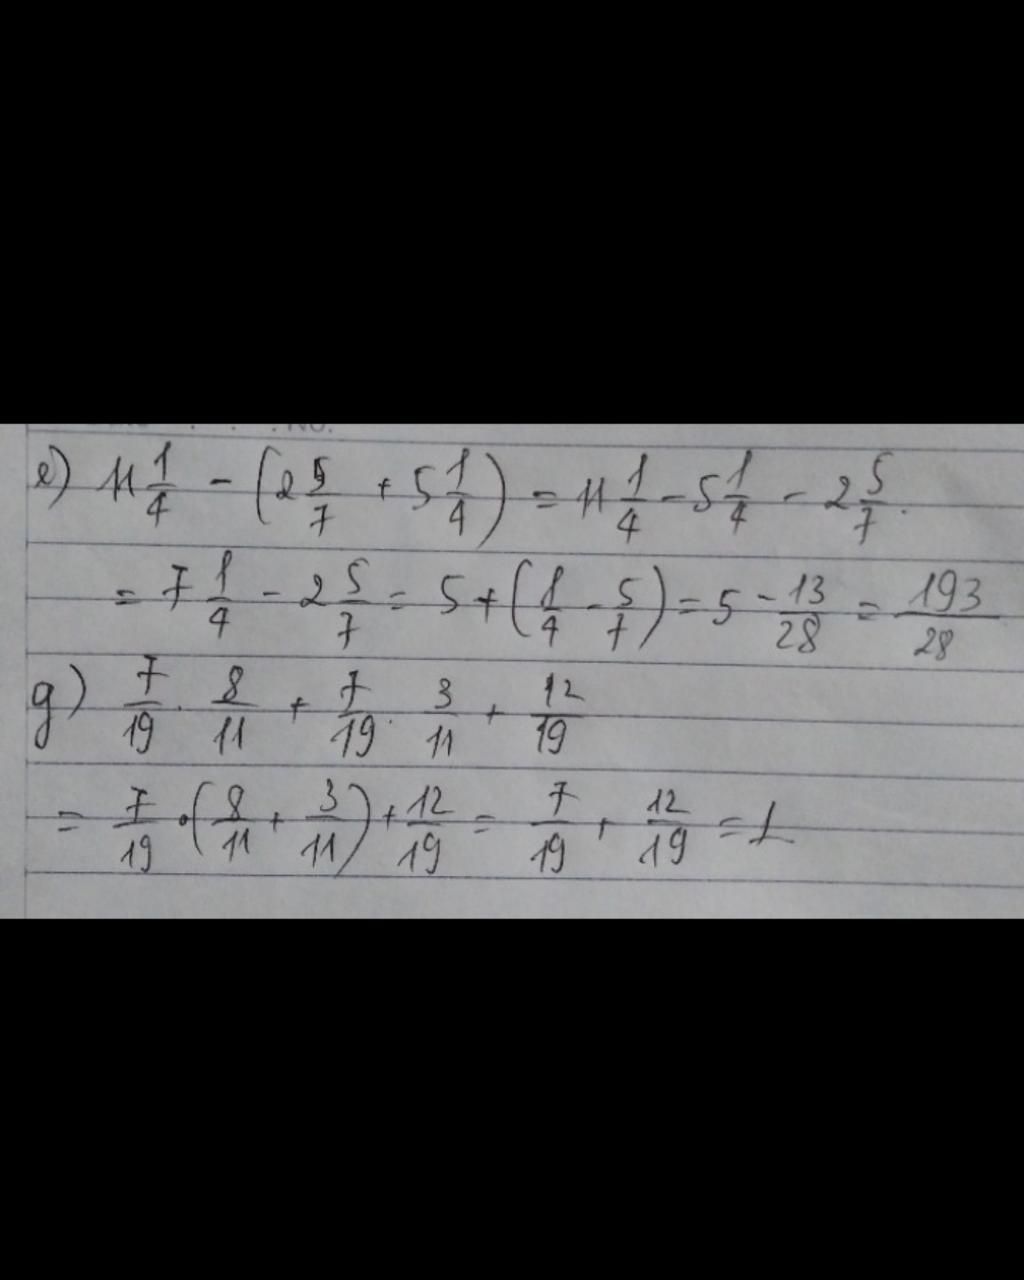 e) 11 1/4 - (2 5/7 + 5 1/4) = 11 1/4 - 5 1/4 - 2 5/7.
= 7 1/4 - 2 5/7 = 5 + (1/4 - 5/7) = 5 - 13/28 = 193/28
g) 7/19 . 8/11 + 7/19 . 3/11 + 12/19
= 7/19 . (8/11 + 3/11) + 12/19 = 7/19 + 12/19 = 1